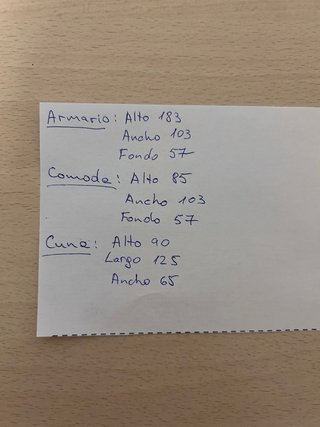 Armario: Alto 183
Ancho 103
Fondo 57
Comoda: Alto 85
Ancho 103
Fondo 57
Cuna: Alto 90
Largo 125
Ancho 65